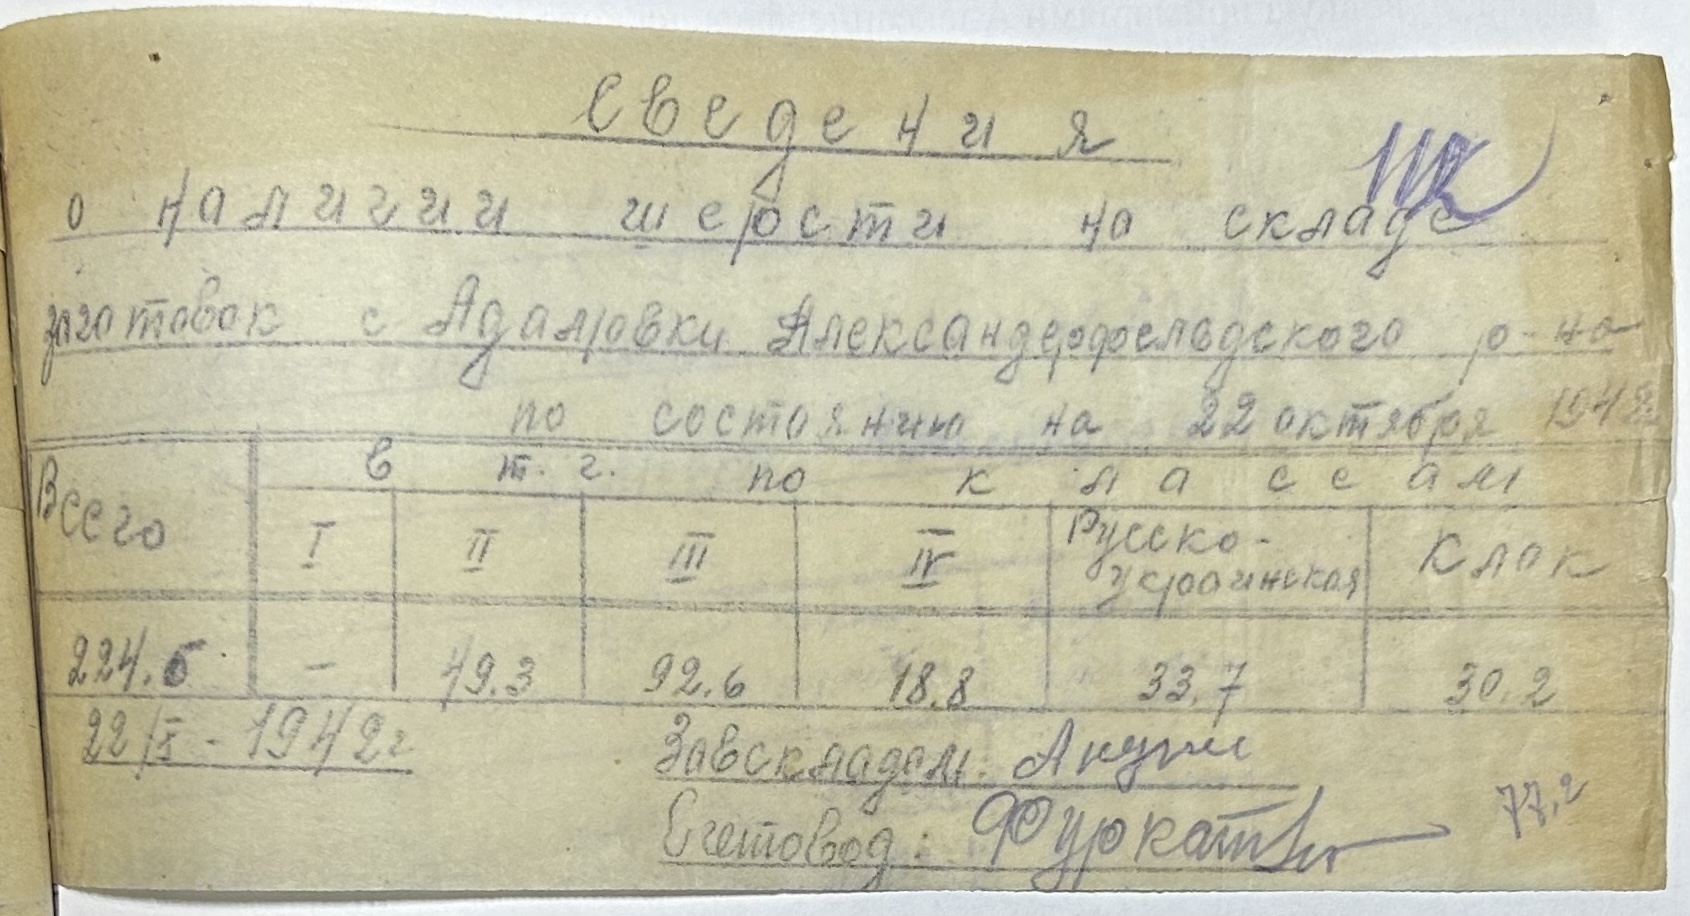 Сведения
о наличии шерсти на складе
заготовок с Адамовки Александерфельдского р-на
по состоянию на 22 октября 1942
Всего в т. г. по классам
I II III IV Русско-украинская Клок
224.6 – 49.3 92.6 18.8 33.7 30.2
22/X - 1942г Завскладом.
Счетовод:
77,2